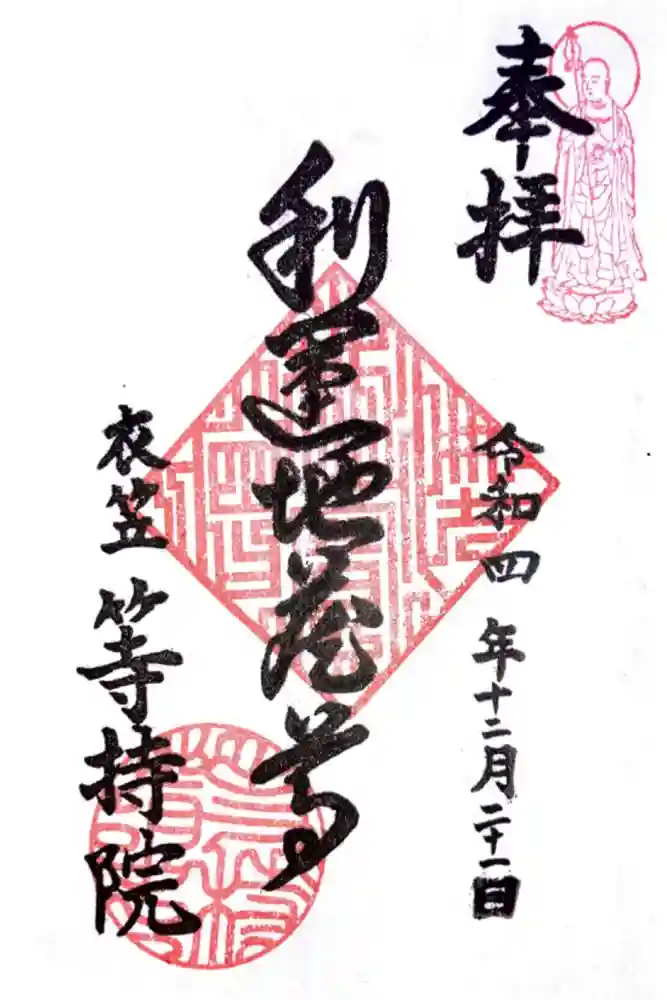 奉拝
令和四年十二月二十一日
利運地蔵尊
衣笠
等持院